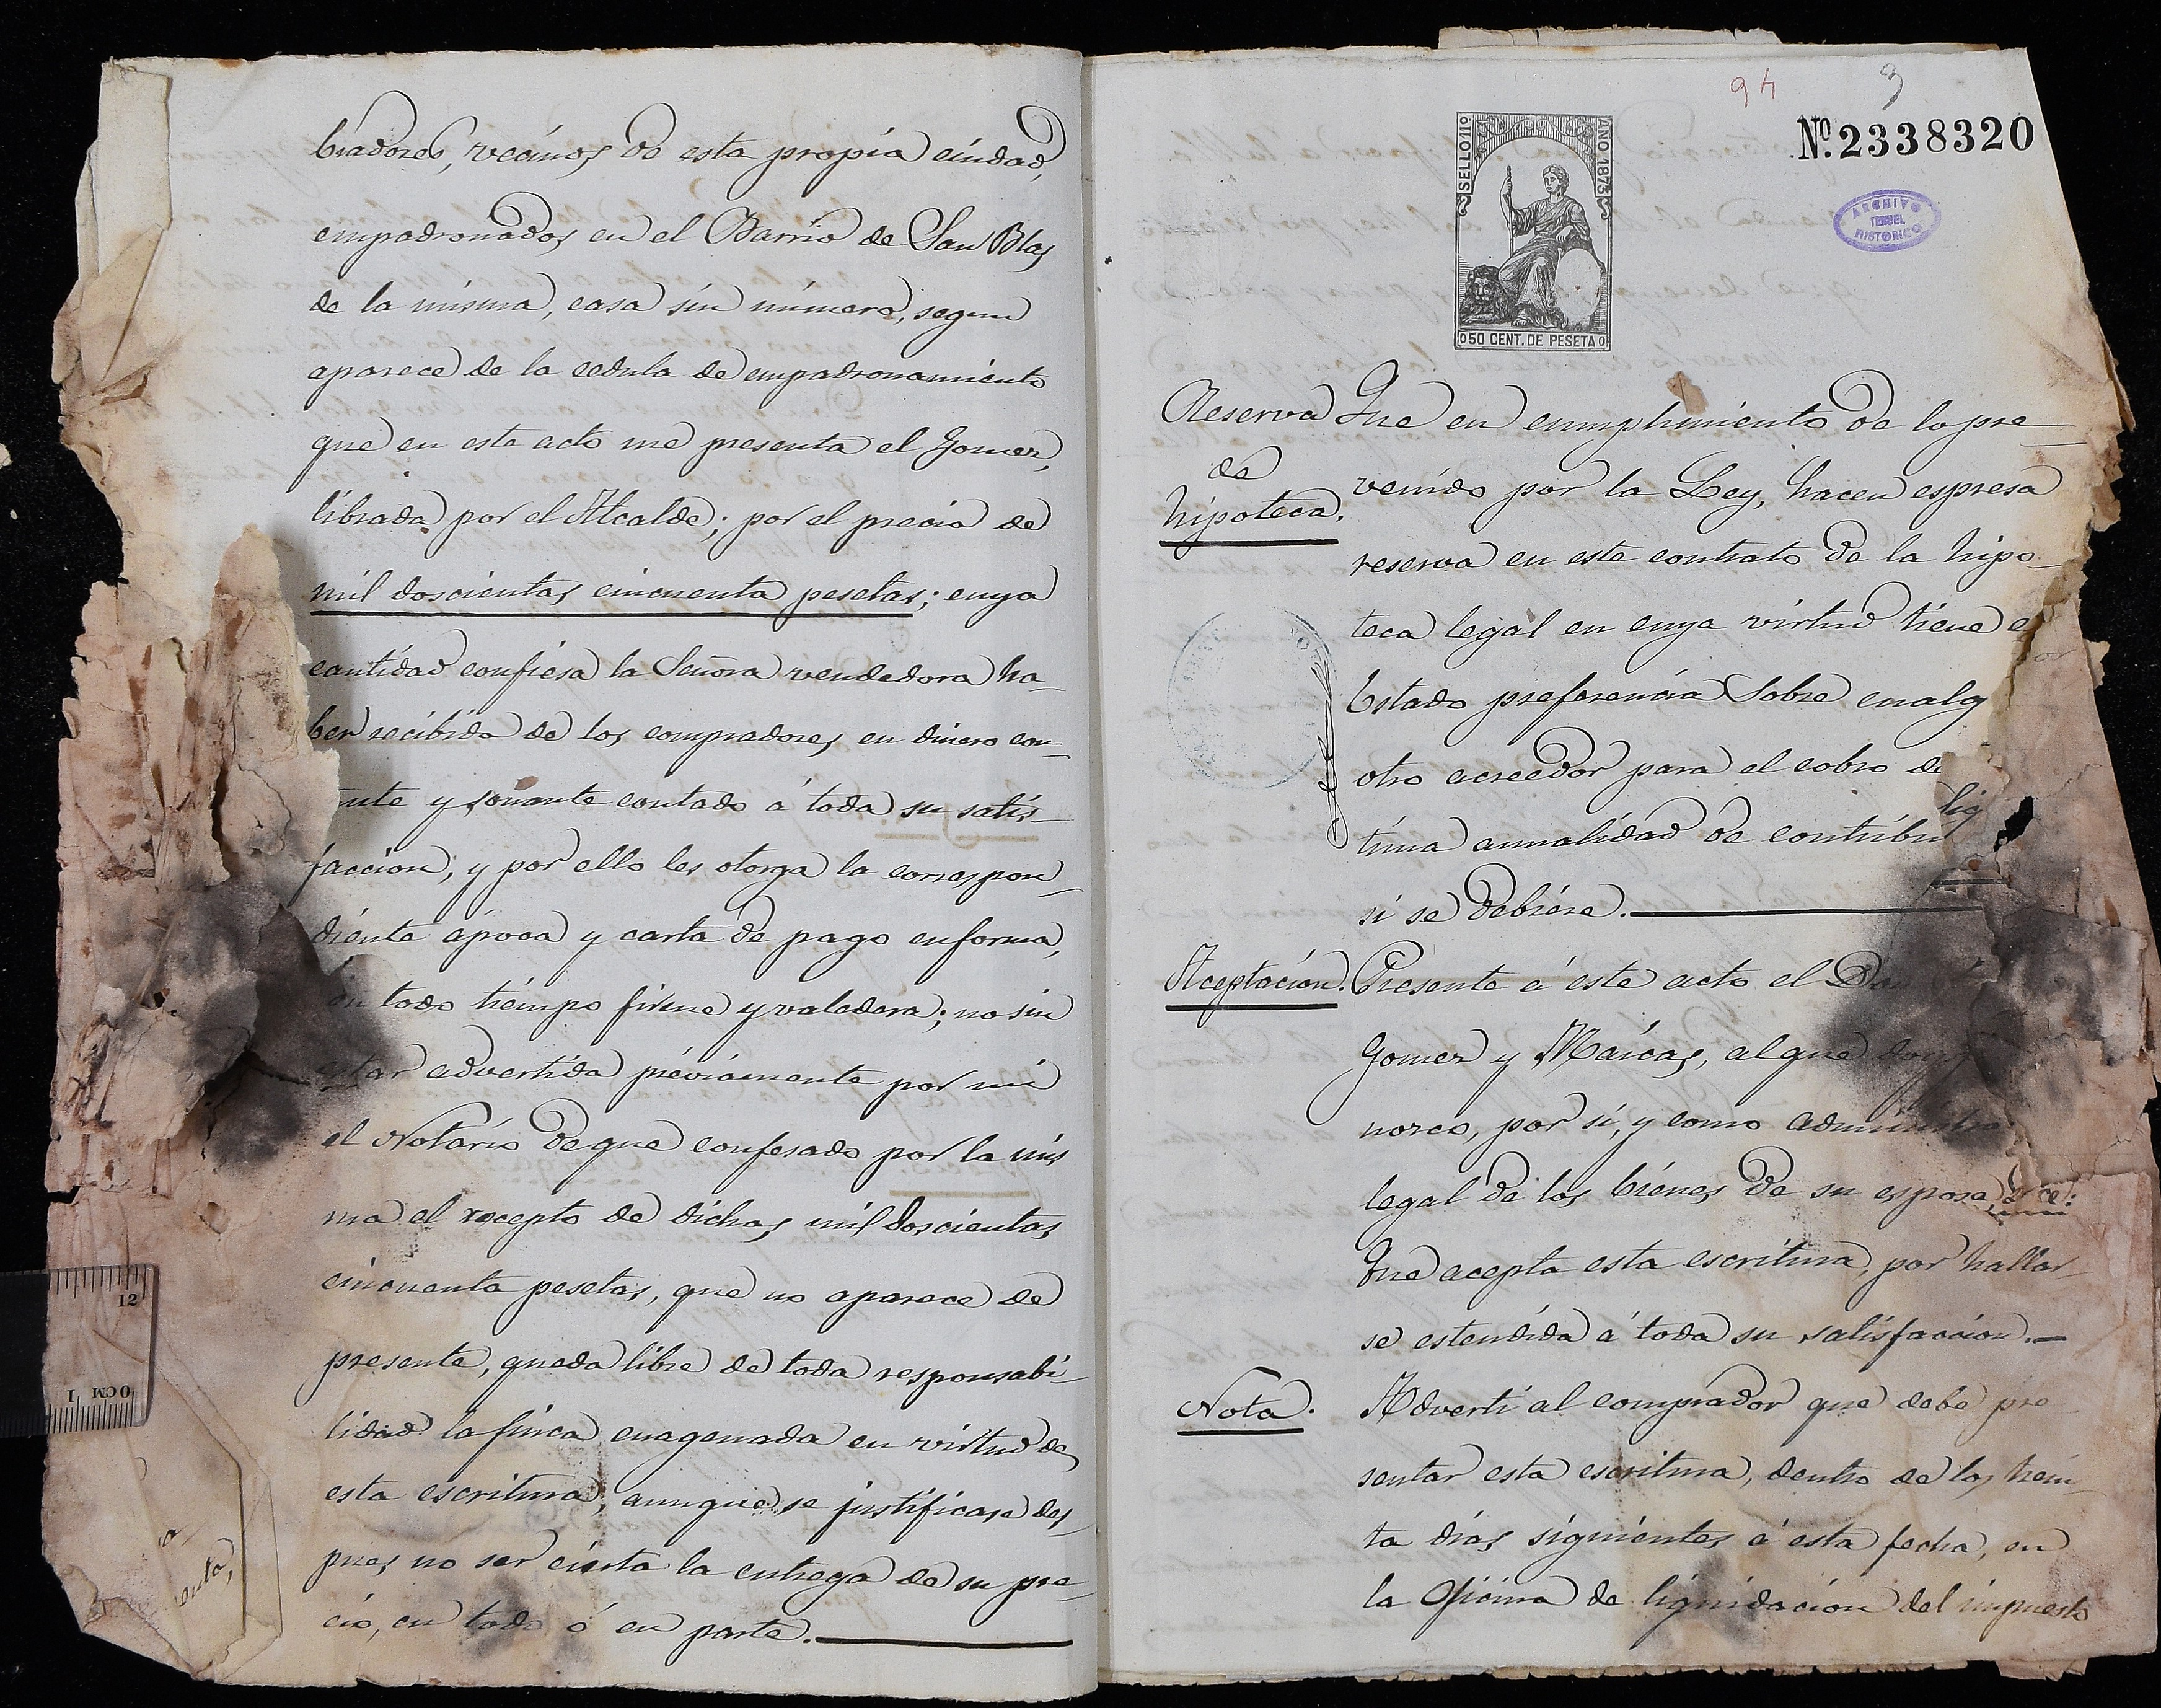 bradores, vecinos de esta propia ciudad,
empadronados en el Barrio de San Blas
de la misma, casa sin número, segun
aparece de la cedula de empadronamiento
que en este acto me presenta el Gomez,
librada por el Alcalde; por el precio de
mil doscientas cincuenta pesetas; cuya
cantidad confiesa la Señora vendedora ha-
ber recibido de los compradores en dinero con-
tante y sonante contado á toda su satis-
faccion, y por ello les otorga la correspon-
diente ápoca y carta de pago en forma,
en todo tiempo firme y valedera; no sin
estar advertida préviamente por mí
el Notario de que confesado por la mis
ma el recepto de dichas mil doscientas
cincuenta pesetas, que no aparece de
presente, queda libre de toda responsabi-
lidad la finca enagenada en virtud de
esta escritura, aunque se justificase des-
pues no ser cierta la entrega de su pre-
cio, en todo ó en parte.
o
enta,
12
0CM 1
94 3
SELLO 11º
AÑO 1875
50 CENT. DE PESETA
Nº 2338320
TERUEL
HISTORICO
Reserva
de
hipoteca.
Que en cumplimiento de lo pre-
venido por la Ley, hacen espresa
reserva en este contrato de la hipo-
teca legal en cuya virtud tiene e
Estado preferencia sobre cualq
otro acreedor para el cobro de
tima anualidad de contribu
si se debiere.
Aceptacion.
Presente á este acto el
Gomez y Maícas, al que doy
nozco, por sí, y como administra
legal de los bienes de su esposa dice:
Que acepta esta escritura, por hallar-
se estendida á toda su satisfaccion.
Nota.
Advertí al comprador que debe pre-
sentar esta escritura, dentro de los trein-
ta dias siguientes á esta fecha, en
la Oficina de liquidacion del impuesto